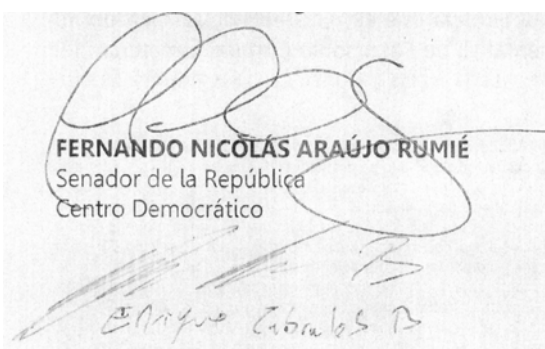 FERNANDO NICOLÁS ARAÚJO RUMIÉ
Senador de la República
Centro Democrático
Enrique Cabrales B